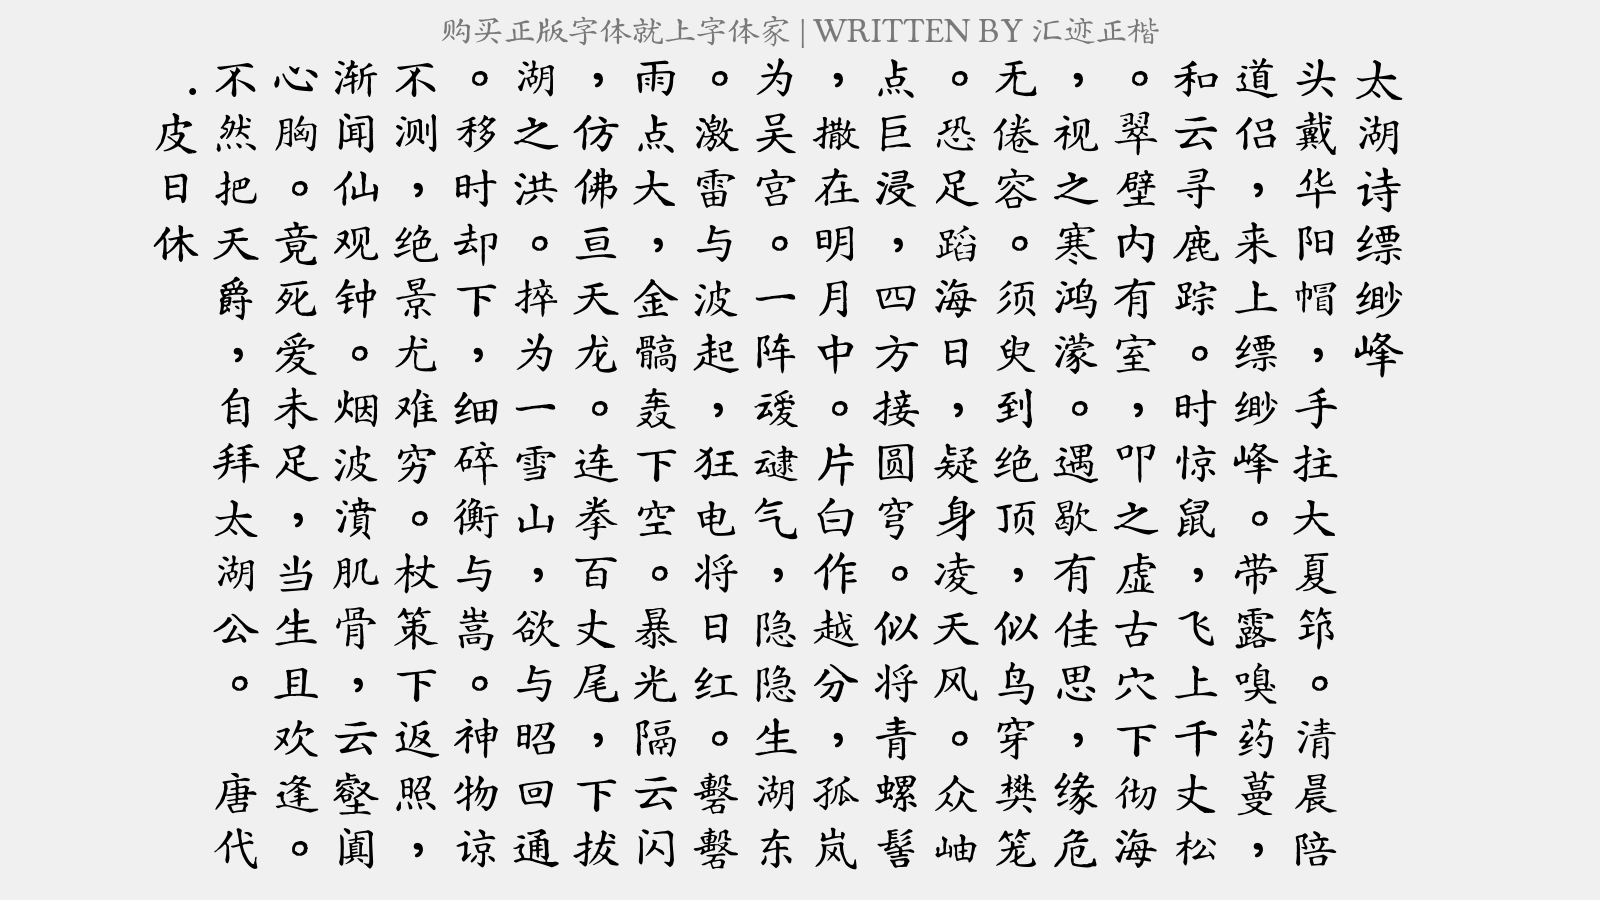 购买正版字体就上字体家 | WRITTEN BY 汇迹正楷
太湖诗缥缈峰
头戴华阳帽，手拄大夏筇。清晨陪
道侣，来上缥缈峰。带露嗅药蔓，
和云寻鹿踪。时惊鼠，飞上千丈松
。翠壁内有室，叩之虚古穴下彻海
，视之寒鸿濛。遇歇有佳思，缘危
无倦容。须臾到绝顶，似鸟穿樊笼
。恐足蹈海日，疑身凌天风。众岫
点巨浸，四方接圆穹。似将青螺髻
，撒在明月中。片白作越分，孤岚
为吴宫。一阵叆叇气，隐隐生湖东
。激雷与波起，狂电将日红。礊礊
雨点大，金髇轰下空。暴光隔云闪
，仿佛亘天龙。连拳百丈尾，下拔
湖之洪。捽为一雪山，欲与昭回通
。移时却下，细碎衡与嵩。神物谅
不测，绝景尤难穷。杖策下返照，
渐闻仙观钟。烟波濆肌骨，云壑阗
心胸。竟死爱未足，当生且欢逢。
不然把天爵，自拜太湖公。 唐代
.皮日休